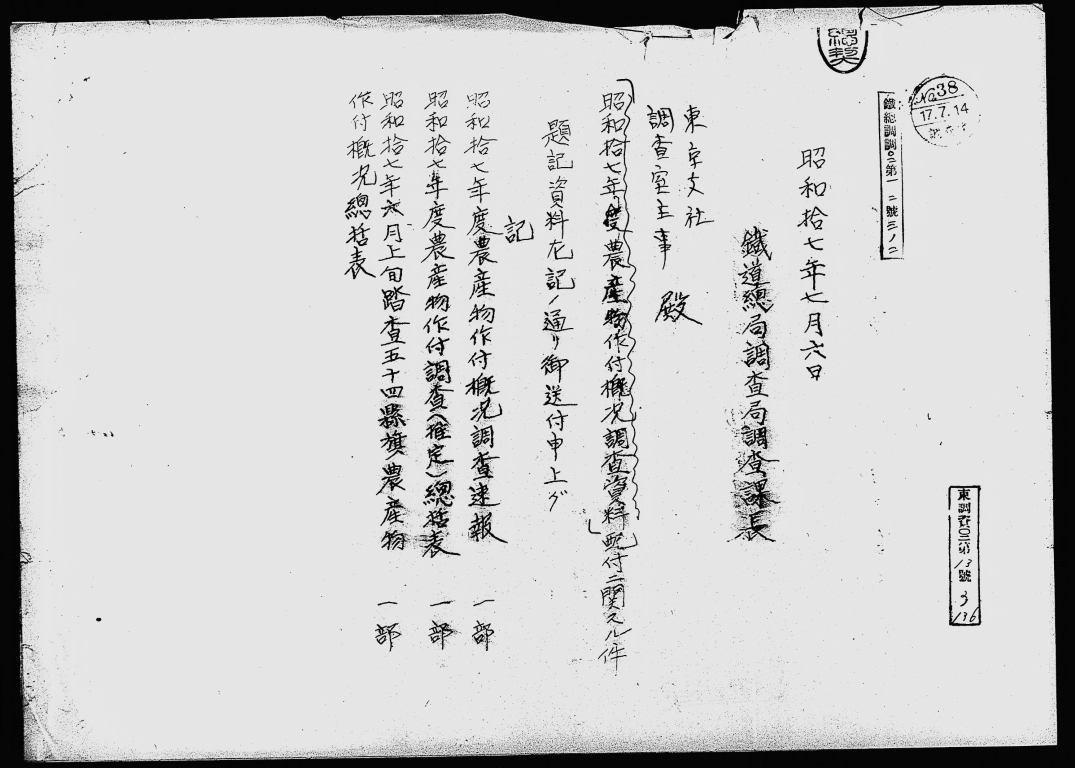 No 38
17.7.14
鐵總調調〇二第一二號三ノ二
昭和拾七年七月六日
鐵道總局調査局調査課長
東京支社
調査室主事 殿
昭和拾七年度農産物作付概況調査資料配付ニ關スル件
題記資料左記ノ通リ御送付申上グ
記
昭和拾七年度農産物作付概況調査速報 一部
昭和拾七年度農産物作付調査(推定)總括表 一部
昭和拾七年六月上旬踏査五十四縣旗農産物 一部
作付概況總括表
東調査〇二六第13號3/136